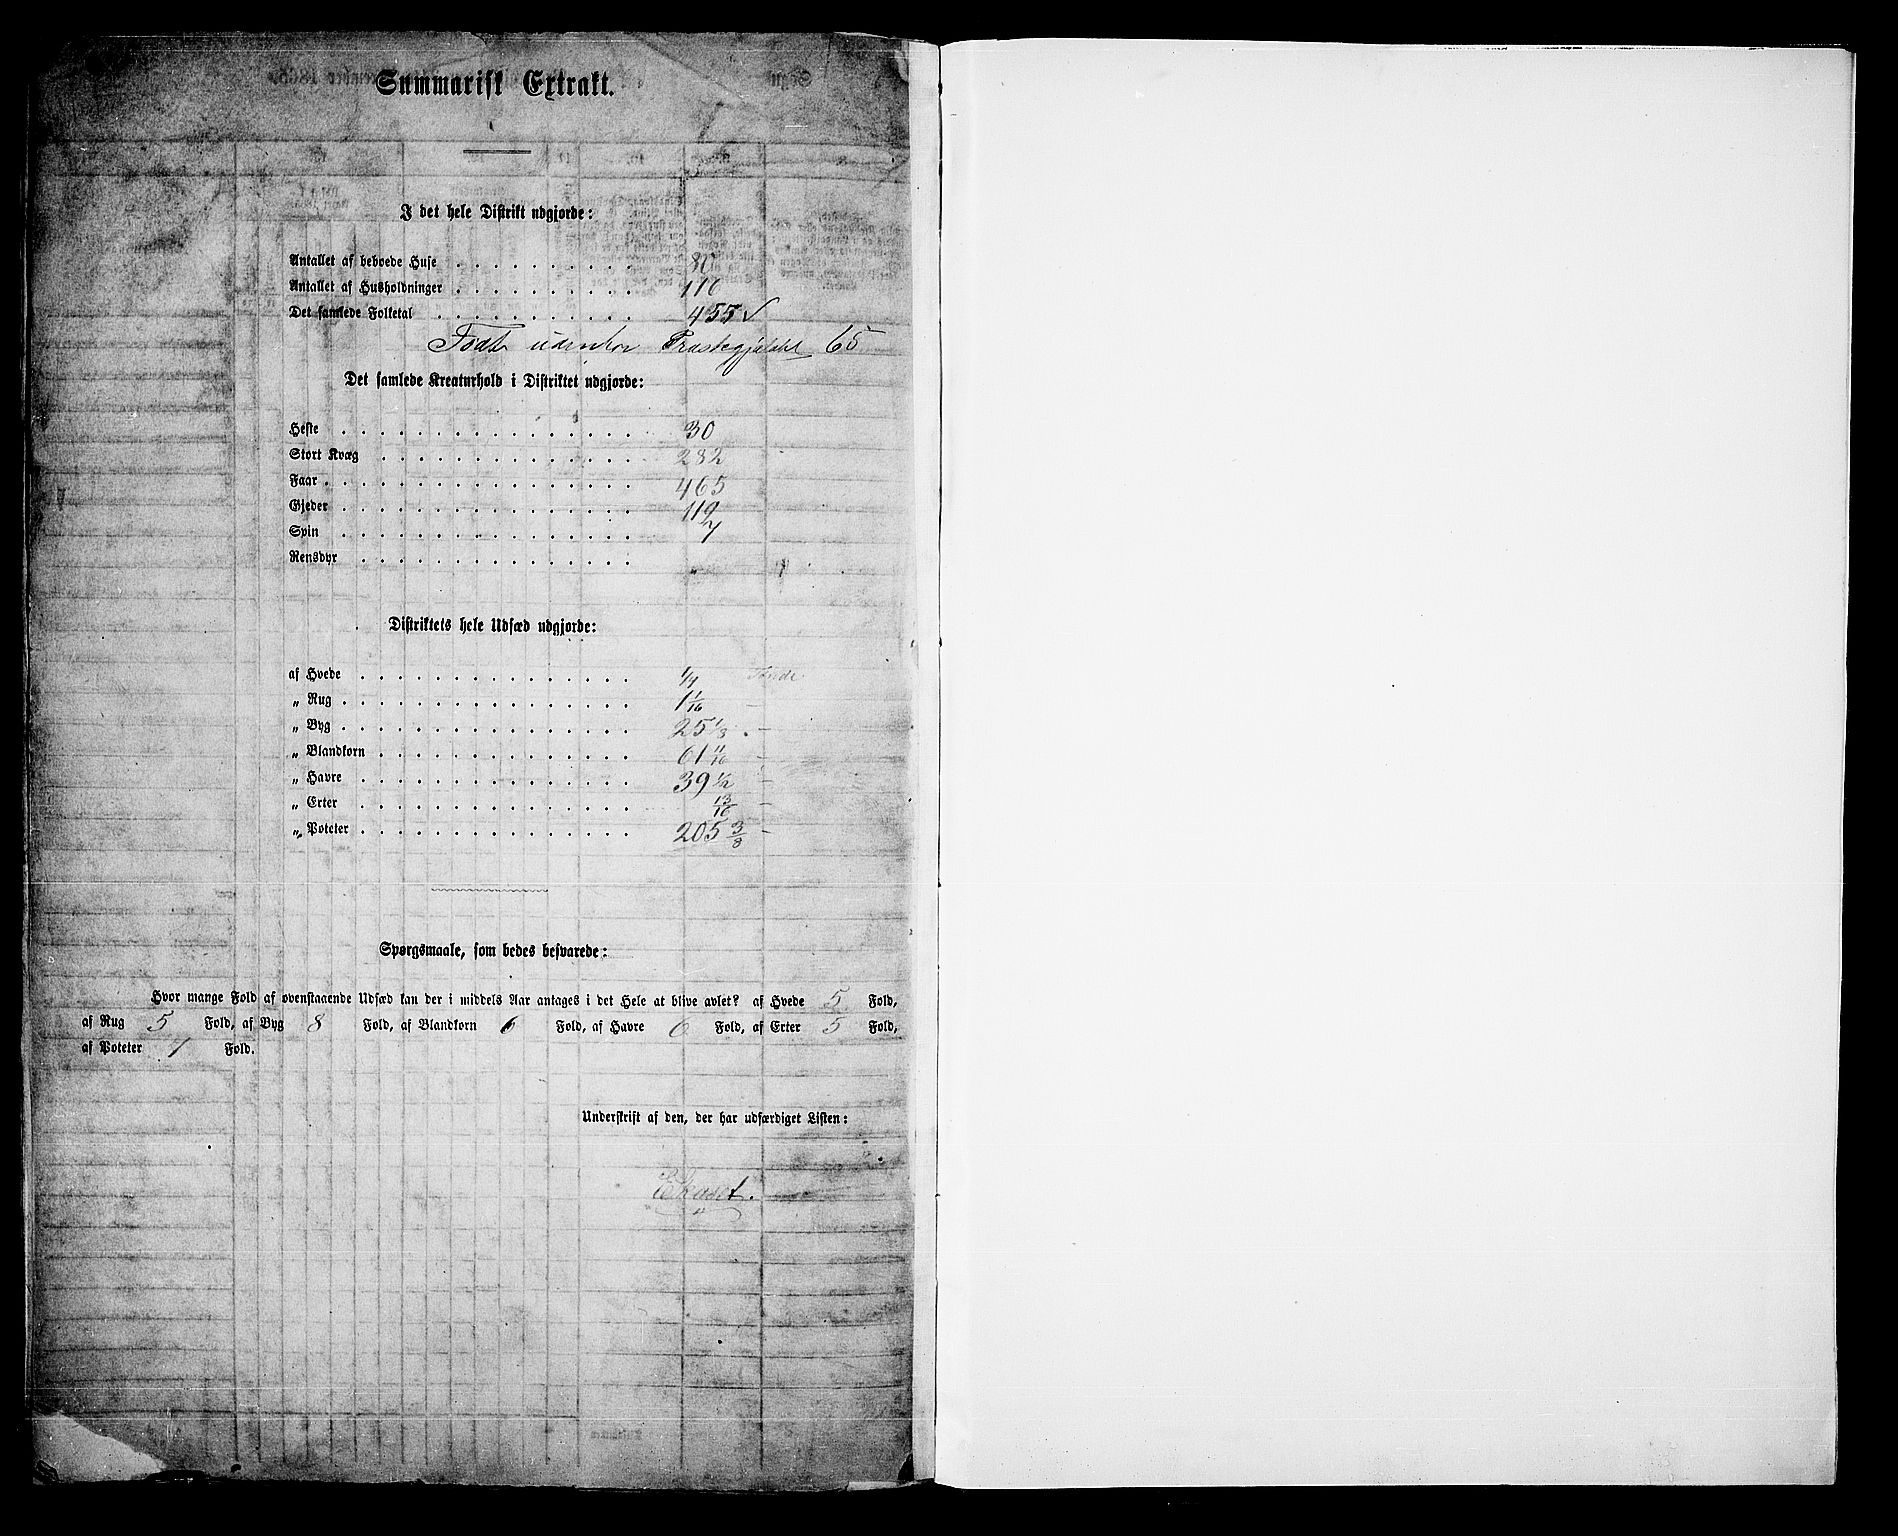 Summarisk Extrakt.
I det hele Distrikt udgjorde:
Antallet af beboede Huse . . . . . . . . . . 80
Antallet af Husholdninger . . . . . . . . . . 110
Det samlede Folketal . . . . . . . . . . . 455 ✓
Født udenfor Præstegjældet 65
Det samlede Kreaturhold i Distriktet udgjorde:
Heste . . . . . . . . . . . . . . . . 30
Stort Kvæg . . . . . . . . . . . . . . 282
Faar . . . . . . . . . . . . . . . . . 465
Gjeder . . . . . . . . . . . . . . . . 119
Svin . . . . . . . . . . . . . . . . 7
Rensdyr . . . . . . . . . . . . . . . "
Distriktets hele Udsæd udgjorde:
af Hvede . . . . . . . . . . . . . . . 1/4 Tønde
„ Rug . . . . . . . . . . . . . . . . 1 1/16 –
„ Byg . . . . . . . . . . . . . . . . 25 1/8 –
„ Blandkorn . . . . . . . . . . . . . . 61 11/16 –
„ Havre . . . . . . . . . . . . . . . 39 1/2 –
„ Erter . . . . . . . . . . . . . . . 13/16 –
„ Poteter . . . . . . . . . . . . . . . 205 3/8 –
Spørgsmaale, som bedes besvarede:
Hvor mange Fold af ovenstaaende Udsæd kan der i middels Aar antages i det Hele at blive avlet? af Hvede 5 Fold,
af Rug 5 Fold, af Byg 8 Fold, af Blandkorn 6 Fold, af Havre 6 Fold, af Erter 5 Fold,
af Poteter 7 Fold.
Underskrift af den, der har udfærdiget Listen: